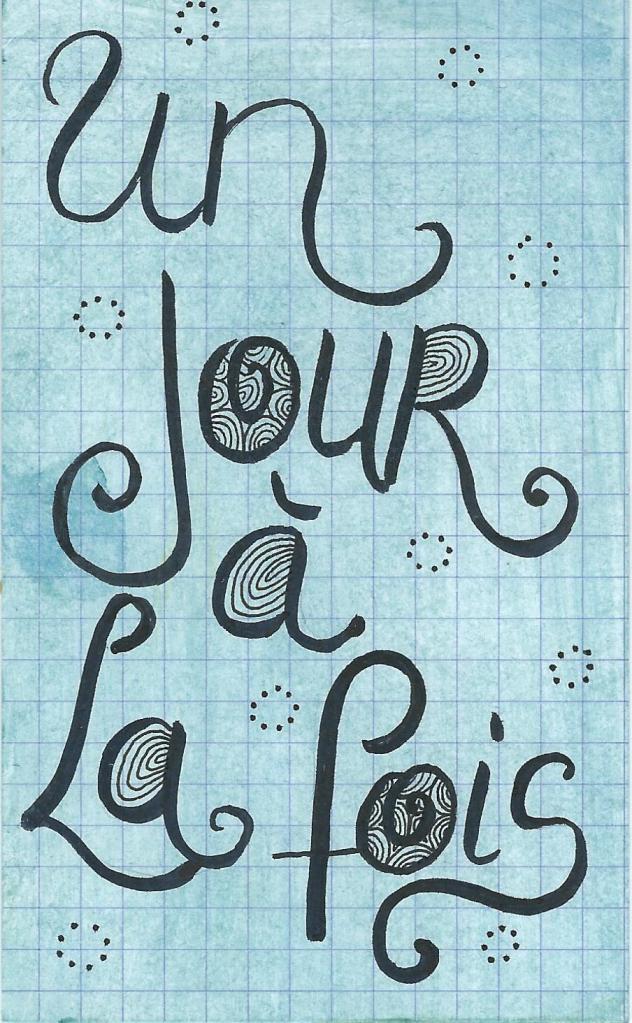 Un
JOUR
à
La fois